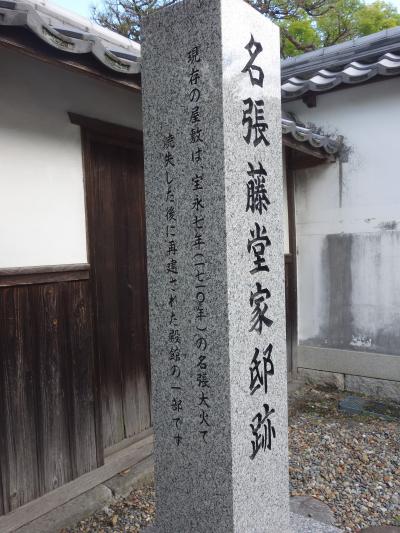 名張藤堂家邸跡
現存の屋敷は、宝永七年(一七一〇年)の名張大火で
焼失した後に再建された殿館の一部です